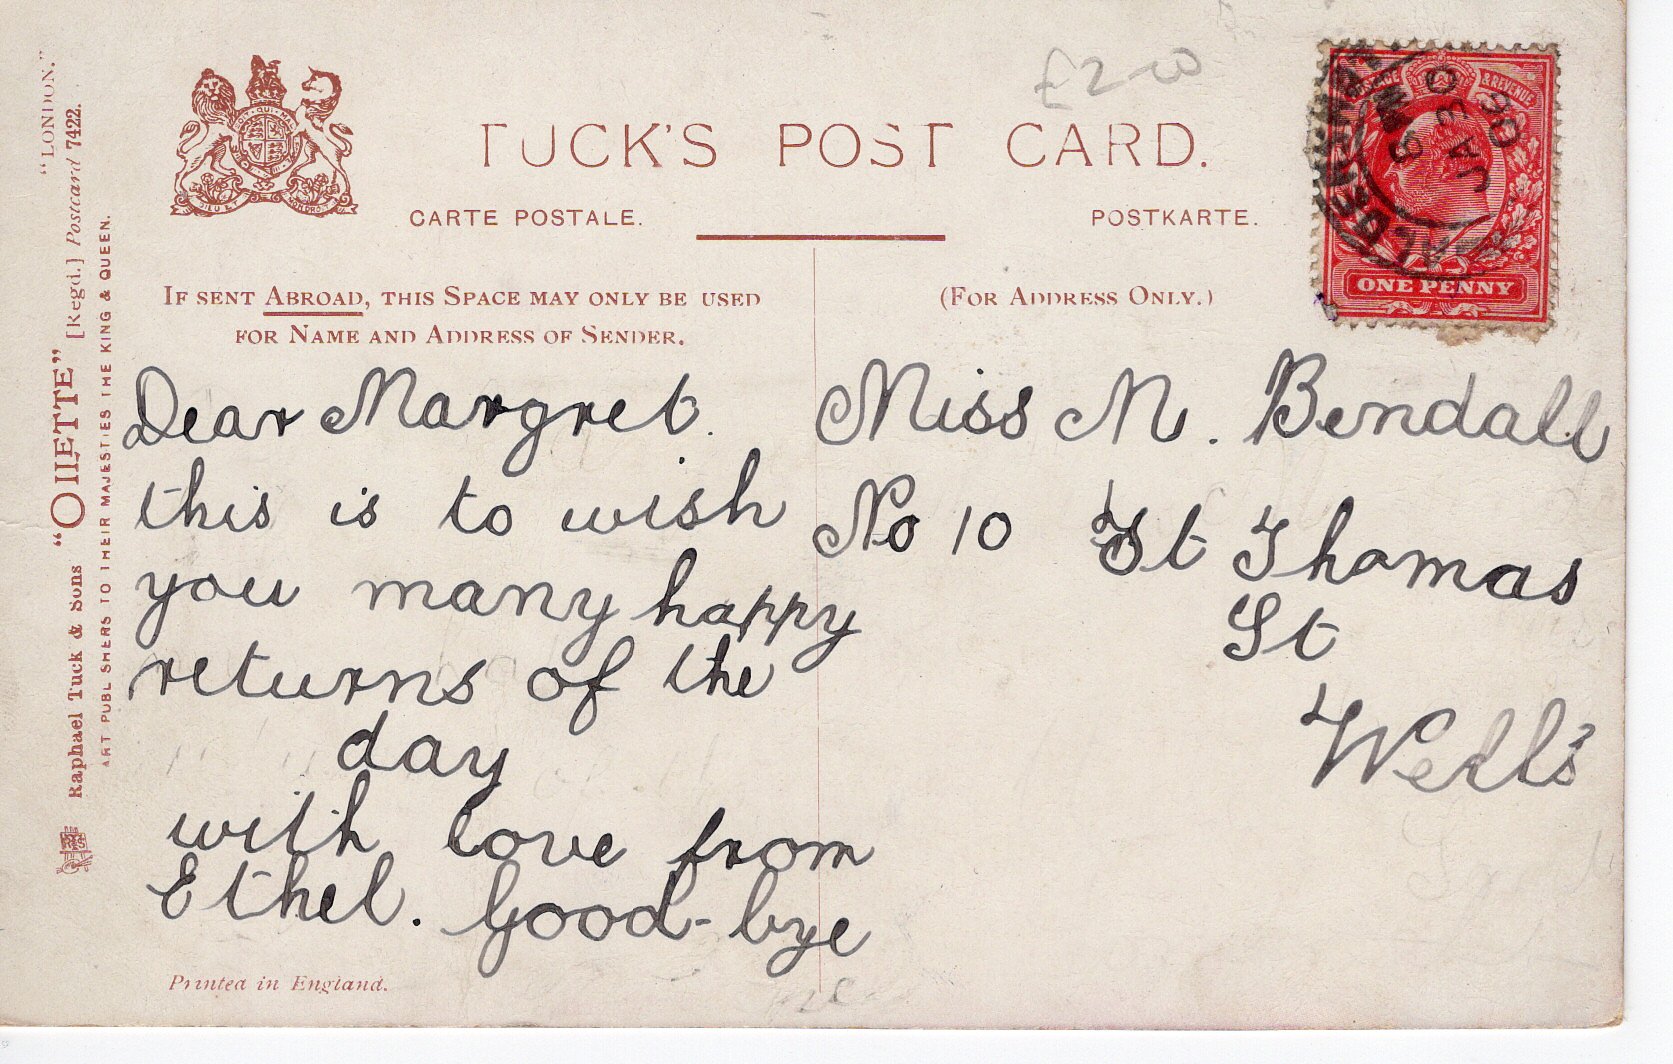 £2-00
TUCK'S POST CARD.
CARTE POSTALE.
POSTKARTE.
POSTAGE & REVENUE
6 PM
JA 30
06
ONE PENNY
IF SENT ABROAD, THIS SPACE MAY ONLY BE USED
FOR NAME AND ADDRESS OF SENDER.
(FOR ADDRESS ONLY.)
Dear Margret.
this is to wish
you many happy
returns of the
day
with love from
Ethel. Good-bye
Miss M. Bendall
No 10 St Thomas
St
Wells
Printed in England.
Raphael Tuck & Sons "OILETTE" [Regd.] Postcard 7422.
"LONDON."
ART PUBLISHERS TO THEIR MAJESTIES THE KING & QUEEN.